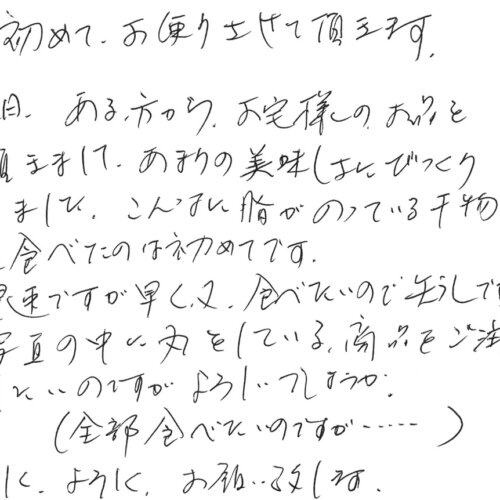 初めて、お便り上げて頂きます。
日、ある方から、お宅様のお品を
頂きまして、あまりの美味しさにびっくり
ました、こんなに脂がのっている干物
食べたのは初めてです。
早速ですが早く、又、食べたいので
写真の中に丸をしている、商品をご注
たいのですがよろしいでしょうか。
(全部食べたいのですが‥‥‥)
に、よろしく、お願い致します。